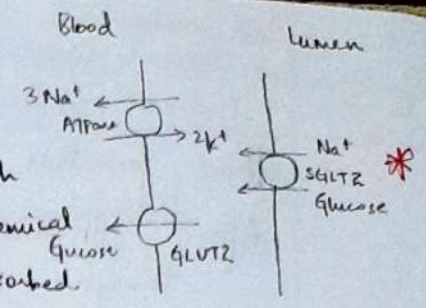 Blood
Lumen
3 Na⁺
ATPase
2K⁺
Na⁺
SGLT2
*
Glucose
h
emical
Gucose
GLUT2
orbed.